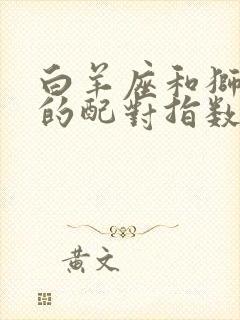 白羊座和獅
的配對指数
黄文